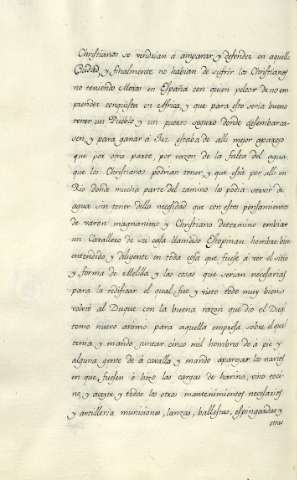 Christianos se vendrian á amparar, y defender en aquella
Ciudad, y finalmente no habian de sufrir los Christianos
no teniendo Moros en España con quien pelear de no em
prender conquistas en Affrica, y que para esto seria bueno
tener un Pueblo y un puerto seguro donde desembarca-
sen, y para ganar á Fez estaba de alli mejor aparejo
que por otra parte, por razon de la falta del agua
que los Christianos podrian tener, y que está por alli un
Rio donde mucha parte del camino la podia servir de
agua sin tener della necesidad que con estos pensamientos
de varon magnanimo y Christiano determinó embiar
un Cavallero de su casa llamado Estopiñan hombre bien
entendido, y diligente en toda cosa que fuese á ver el sitio
y forma de Melilla, y las cosas que serian necesarias
para la redificar el qual fue y visto todo muy bien
volvió al Duque con la buena razon que dió el Duq.
tomó nuevo animo para aquella empresa sobre el que
tenia, y mandó juntar cinco mil hombres de á pie y
alguna gente de á cavallo y mandó aparejar los navios
en que fuesen é hizo las cargas de harina, vino toci-
no, y aceyte, y todos los otros mantenimientos necesarios
y artilleria municiones, lanzas, ballestas, espingardas y